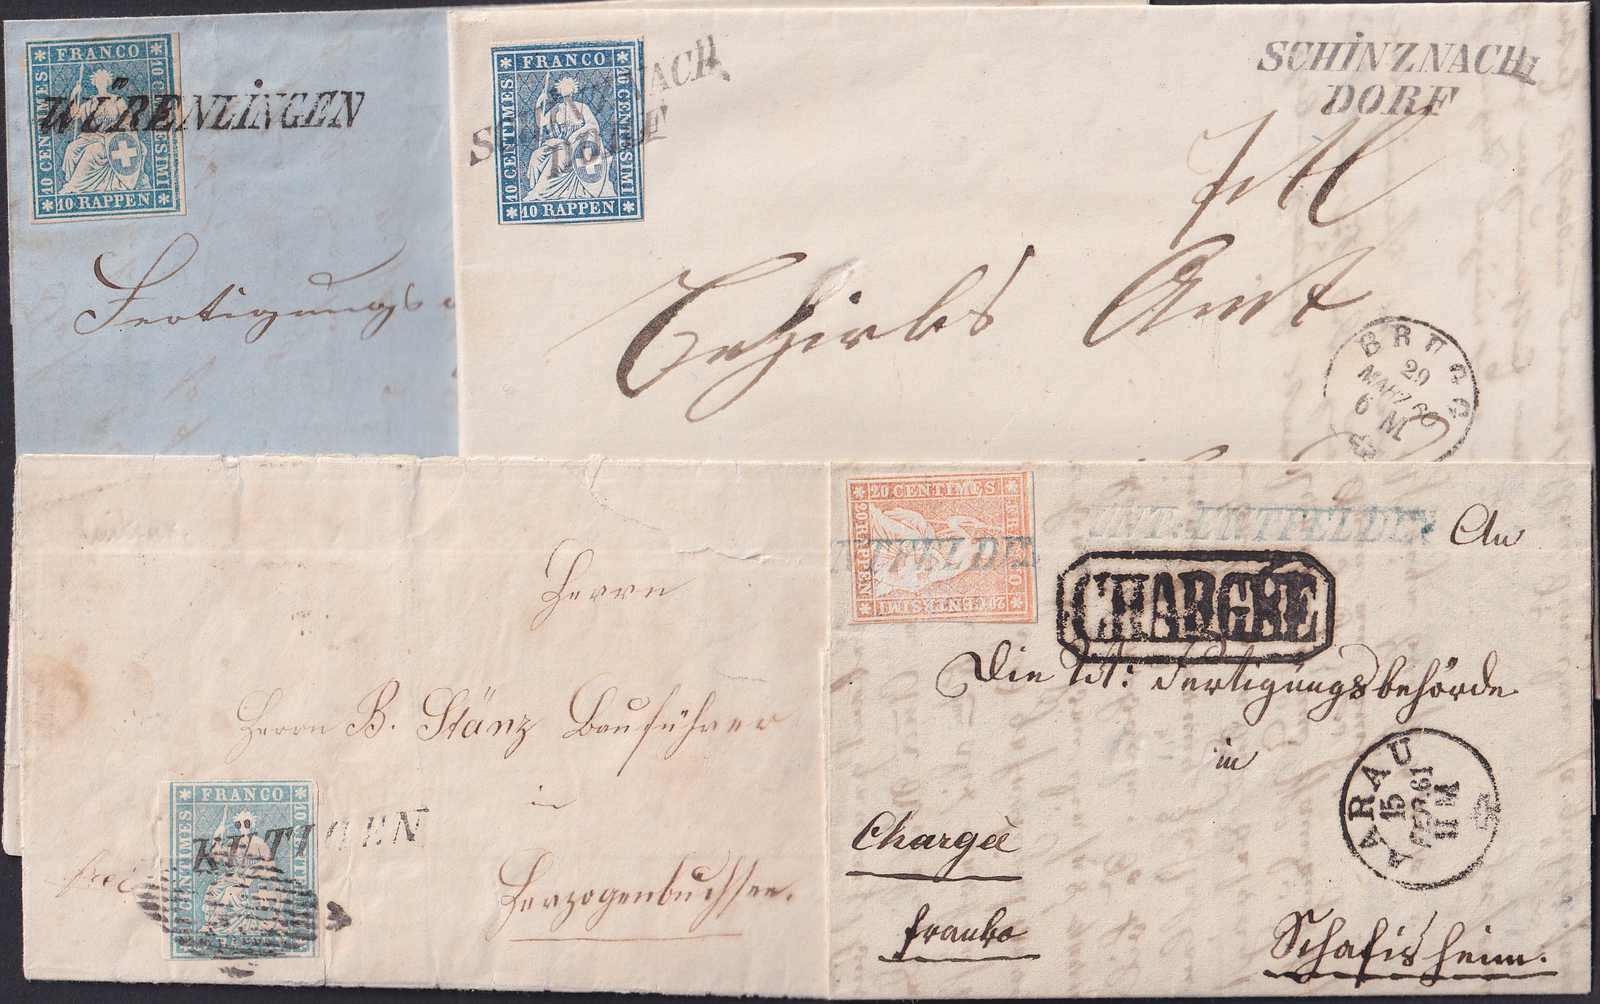 FRANCO
10 CENTIMES
10 CENTESIMI
10 RAPPEN
WÜRENLINGEN
Fertigungs
FRANCO
10 CENTIMES
10 CENTESIMI
10 RAPPEN
SCHINZNACH
DORF
SCHINZNACH
DORF
Bezirks Amt
BRUGG
29
MARZ 60
6 M
Herrn
Herrn B. Stänz Bauführer
in
Herzogenbuchsee.
FRANCO
10 CENTIMES
KÜTTIGEN
20 CENTIMES
FRANCO
20 RAPPEN
20 CENTESIMI
NTFELDE
UNT. ENTFELDEN
An
CHARGÉE
Die Tit: Fertigungsbehörde
in
AARAU
15
FEBR. 61
11 M
Chargée
franko
Schafisheim.